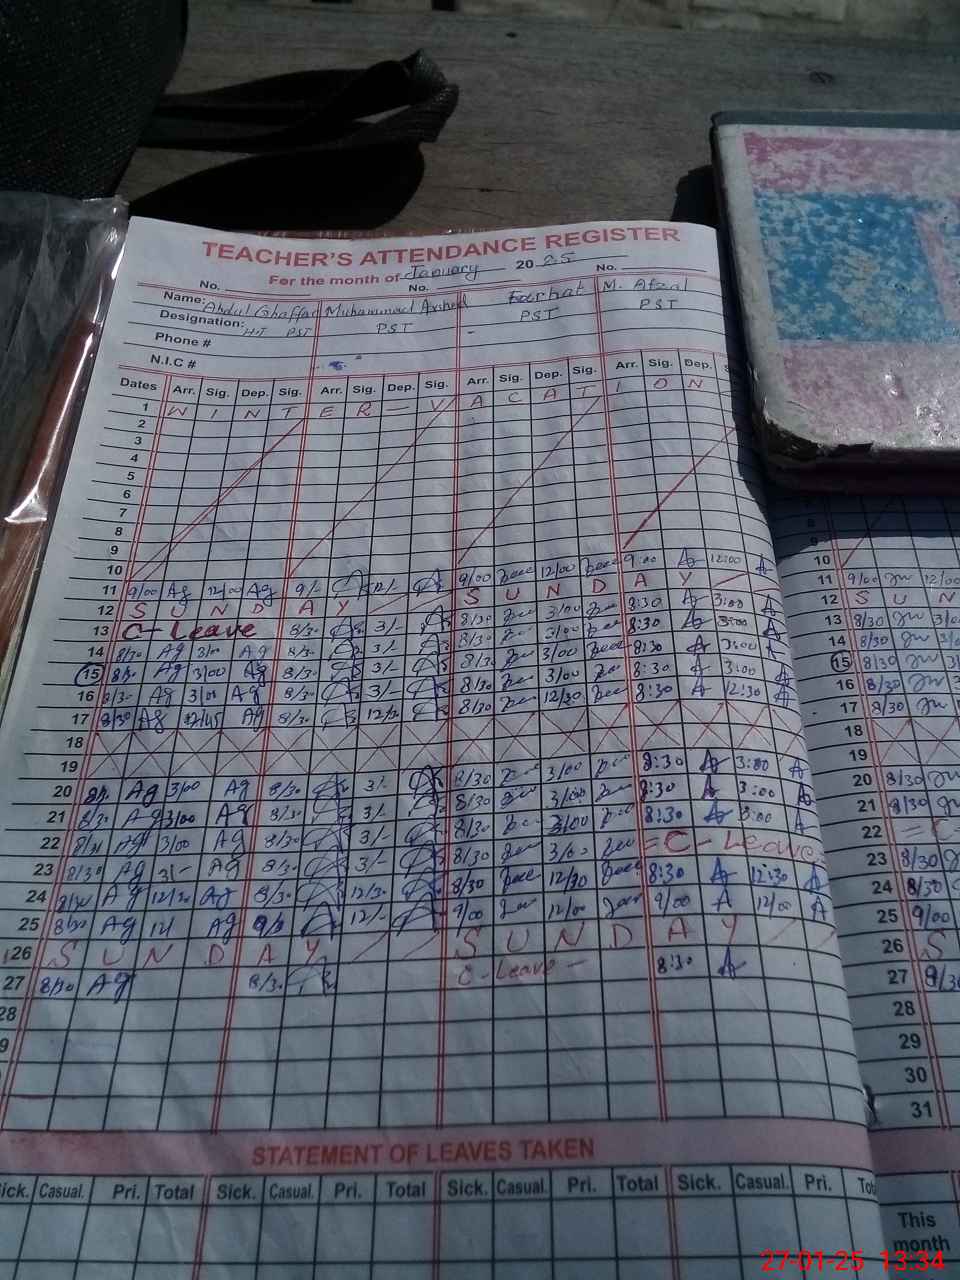 TEACHER'S ATTENDANCE REGISTER
For the month of January 20 25
No. No. No.
Name: Abdul Ghaffar Muhammad Arshad Farhat M. Afzal
Designation: HT PST PST PST PST
Phone #
N.I.C #
Dates Arr. Sig. Dep. Sig. Arr. Sig. Dep. Sig. Arr. Sig. Dep. Sig. Arr. Sig. Dep.
1 W I N T E R — V A C A T I O N
2
3
4
5
6
7
8
9
10 10
11 9/00 Ag 12/00 Ag 9/- 12/- 9/00 12/00 9:00 A 12:00 A 11 9/00 12/00
12 S U N D A Y S U N D A Y 12 S U N
13 C- Leave 8/30 3/- 8/30 3/00 8:30 A 3:00 A 13 8/30 3/0
14 8/30 Ag 3/00 Ag 8/30 3/- 8/30 3/00 8:30 A 3:00 A 14 8/30 3/0
15 8/30 Ag 3/00 Ag 8/30 3/- 8/30 3/00 8:30 A 3:00 A 15 8/30
16 8/30 Ag 3/00 Ag 8/30 3/- 8/30 3/00 8:30 A 3:00 A 16 8/30
17 8/30 Ag 12/45 Ag 8/30 12/30 8/30 12/30 8:30 A 12:30 A 17 8/30
18 18
19 19
20 8/30 Ag 3/00 Ag 8/30 3/- 8/30 3/00 8:30 A 3:00 A 20 8/30
21 8/30 Ag 3/00 Ag 8/30 3/- 8/30 3/00 8:30 A 3:00 A 21 8/30
22 8/30 Ag 3/00 Ag 8/30 3/- 8/30 3/00 8:30 A 3:00 A 22 = C-
23 8/30 Ag 3/- Ag 8/30 3/- 8/30 3/00 = C- Leave 23 8/30
24 8/30 Ag 12/30 Ag 8/30 12/30 8/30 12/30 8:30 A 12:30 A 24 8/30
25 8/30 Ag 12/ Ag 9/ 12/- 9/00 12/00 9/00 A 12/00 A 25 9/00
26 S U N D A Y S U N D A Y 26 S
27 8/30 Ag 8/30 C-Leave - 8:30 A 27 8/30
28 28
9 29
30
31
STATEMENT OF LEAVES TAKEN
ick. Casual. Pri. Total Sick. Casual. Pri. Total Sick. Casual. Pri. Total Sick. Casual. Pri. Tot
This
month
27-01-25 13:34